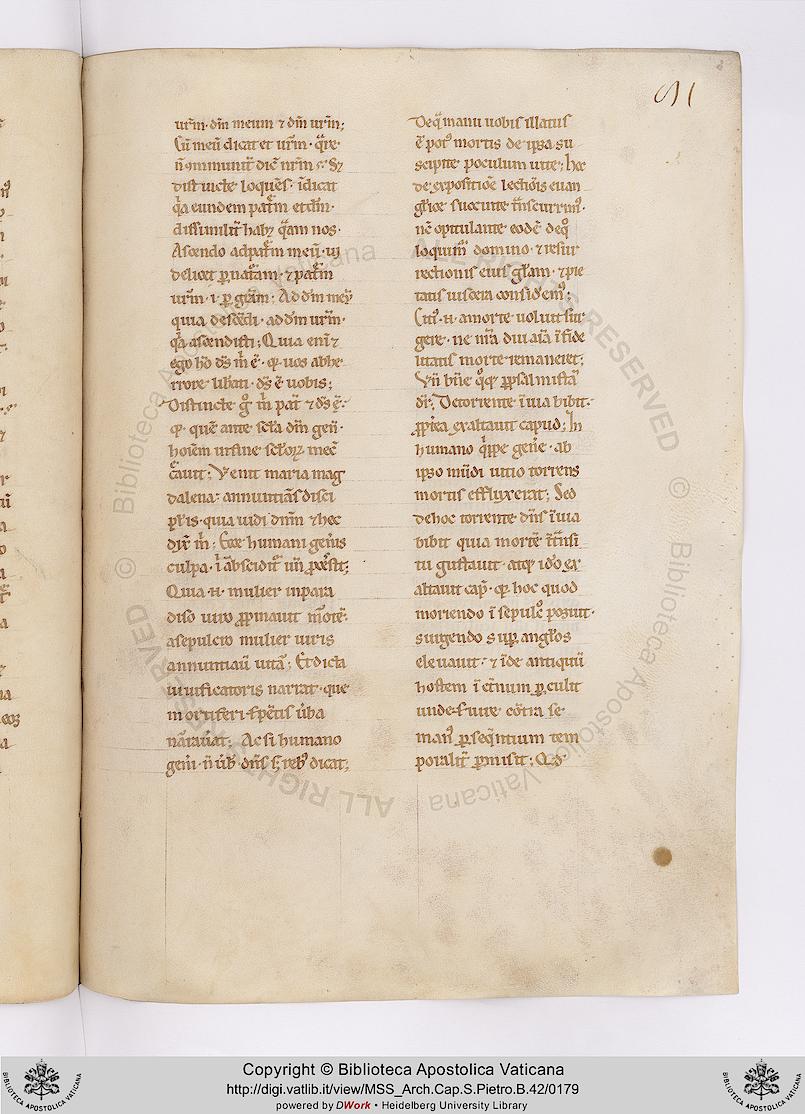 91
urm̄· dm̄ meum ⁊ dm̄ urm̄;
Cū meū dicat et urm̄· q̄re
n̄ ōmmunit̄ dic̄ nrm̄; Sȝ
distincte loquēs· īdicat
q̄a eundem patr̄m et dm̄·
dissimilit̄ habȝ quam nos·
Ascendo ad patr̄m meū· uȝ
delicet ꝑ natāam· ⁊ patr̄m
urm̄· i· ꝑ gr̄am; Ad dm̄ meȳ
quia descēdi· ad dm̄ urm̄·
q̄a ascendisti; Quia enī ⁊
ego hō ds̄ m̄ ē· ꝙ uos ab he
rrore libati· ds̄ ē uobis;
Distincte gͦ m̄ pat̄ ⁊ ds̄ ē·
ꝙ quē ante sc̄la dm̄ gen̄·
hoīem in fine sc̄loꝝ mec̄
c̄auit; Venit maria mag
dalena· annuntiās disci
pl̄is· quia uidi dn̄m ⁊ hec
dix̄ m̄; Ecce humani gen̄is
culpa· ī abscidit̄ un̄ ꝓcēssit;
Quia ·n· mulier in para
diso uiro ꝓpinauit mortē·
a sepulcro mulier uiris
annuntiau̅ uitā; Et dicta
uiuificatoris narrat· que
mortiferi s̄pētis ūba
nārauat; Ac si humano
gen̄i n̄ ūb̄ dn̄s s̄ reb' dicat;
De q̄ manu uobis illatus
ē pot' mortis de ipsa su
scipite poculum uite; hec
de expositiōe lectiōis euan
gl̄ice succinte t̄nscurrim'·
nc̄ opitulante eodē deqͦ
loquim̄ domino· ⁊ resur
rectionis eius gl̄am· ⁊ pie
tatis uiscera consid'em';
Cit' ·n· a morte uoluit sur
gere· ne nr̄a diu aīa ī fide
litatis morte remaneret;
Vn̄ bn̄e qͦqꝫ ꝑ psalmistā
dr̄; De torrente ī uia bibit·
ꝓpt̄ea exaltauit capud; In
humano q̄ppe gen̄e· ab
ipso mūdi initio torrens
mortis effluxerat; Sed
de hoc torrente dn̄s ī uia
bibit quia mortē ī t̄nsi
tu gustauit· atqꝫ id̄o ex
altauit cap̄· ꝙ hoc quod
moriendo ī sepulc̄ posuit·
surgendo sup̄ angl̄os
eleuauit· ⁊ īde antiquū
hostem ī et̄num ꝑculit
unde seuire cōtra se
man' ꝑseq̄ntium tem
poralit̄ ꝑmisit; Qd̄
Copyright © Biblioteca Apostolica Vaticana
http://digi.vatlib.it/view/MSS_Arch.Cap.S.Pietro.B.42/0179
powered by DWork • Heidelberg University Library
BIBLIOTECA APOSTOLICA VATICANA
BIBLIOTECA APOSTOLICA VATICANA
© Biblioteca Apostolica Vaticana ALL RIGHTS RESERVED
© Biblioteca Apostolica Vaticana ALL RIGHTS RESERVED